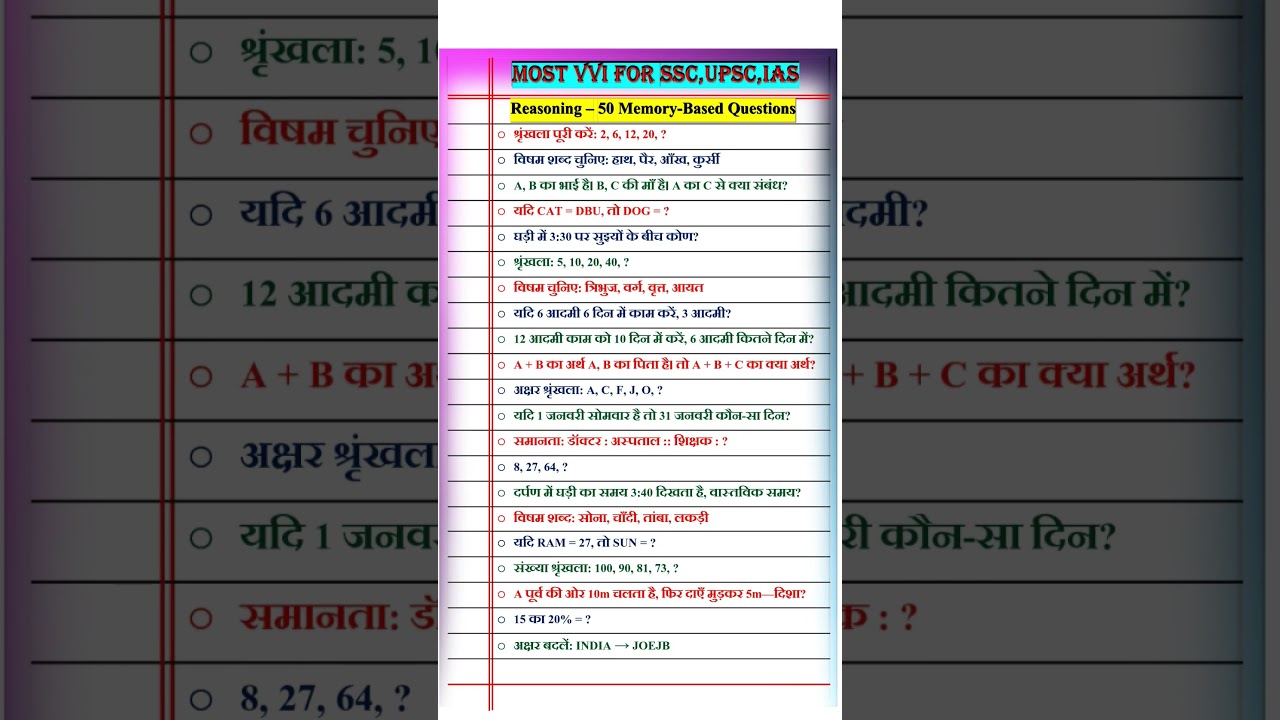 MOST VVI FOR SSC,UPSC,IAS
Reasoning – 50 Memory-Based Questions
○ श्रृंखला पूरी करें: 2, 6, 12, 20, ?
○ विषम शब्द चुनिए: हाथ, पैर, आँख, कुर्सी
○ A, B का भाई है। B, C की माँ है। A का C से क्या संबंध?
○ यदि CAT = DBU, तो DOG = ?
○ घड़ी में 3:30 पर सुइयों के बीच कोण?
○ श्रृंखला: 5, 10, 20, 40, ?
○ विषम चुनिए: त्रिभुज, वर्ग, वृत्त, आयत
○ यदि 6 आदमी 6 दिन में काम करें, 3 आदमी?
○ 12 आदमी काम को 10 दिन में करें, 6 आदमी कितने दिन में?
○ A + B का अर्थ A, B का पिता है। तो A + B + C का क्या अर्थ?
○ अक्षर श्रृंखला: A, C, F, J, O, ?
○ यदि 1 जनवरी सोमवार है तो 31 जनवरी कौन-सा दिन?
○ समानता: डॉक्टर : अस्पताल :: शिक्षक : ?
○ 8, 27, 64, ?
○ दर्पण में घड़ी का समय 3:40 दिखता है, वास्तविक समय?
○ विषम शब्द: सोना, चाँदी, तांबा, लकड़ी
○ यदि RAM = 27, तो SUN = ?
○ संख्या श्रृंखला: 100, 90, 81, 73, ?
○ A पूर्व की ओर 10m चलता है, फिर दाएँ मुड़कर 5m—दिशा?
○ 15 का 20% = ?
○ अक्षर बदलें: INDIA → JOEJB
○ श्रृंखला: 5, 1
○ विषम चुनिए
○ यदि 6 आदमी
दमी?
○ 12 आदमी क
आदमी कितने दिन में?
○ A + B का अ
+ B + C का क्या अर्थ?
○ अक्षर श्रृंखल
○ यदि 1 जनव
री कौन-सा दिन?
○ समानता: डॉ
क : ?
○ 8, 27, 64, ?